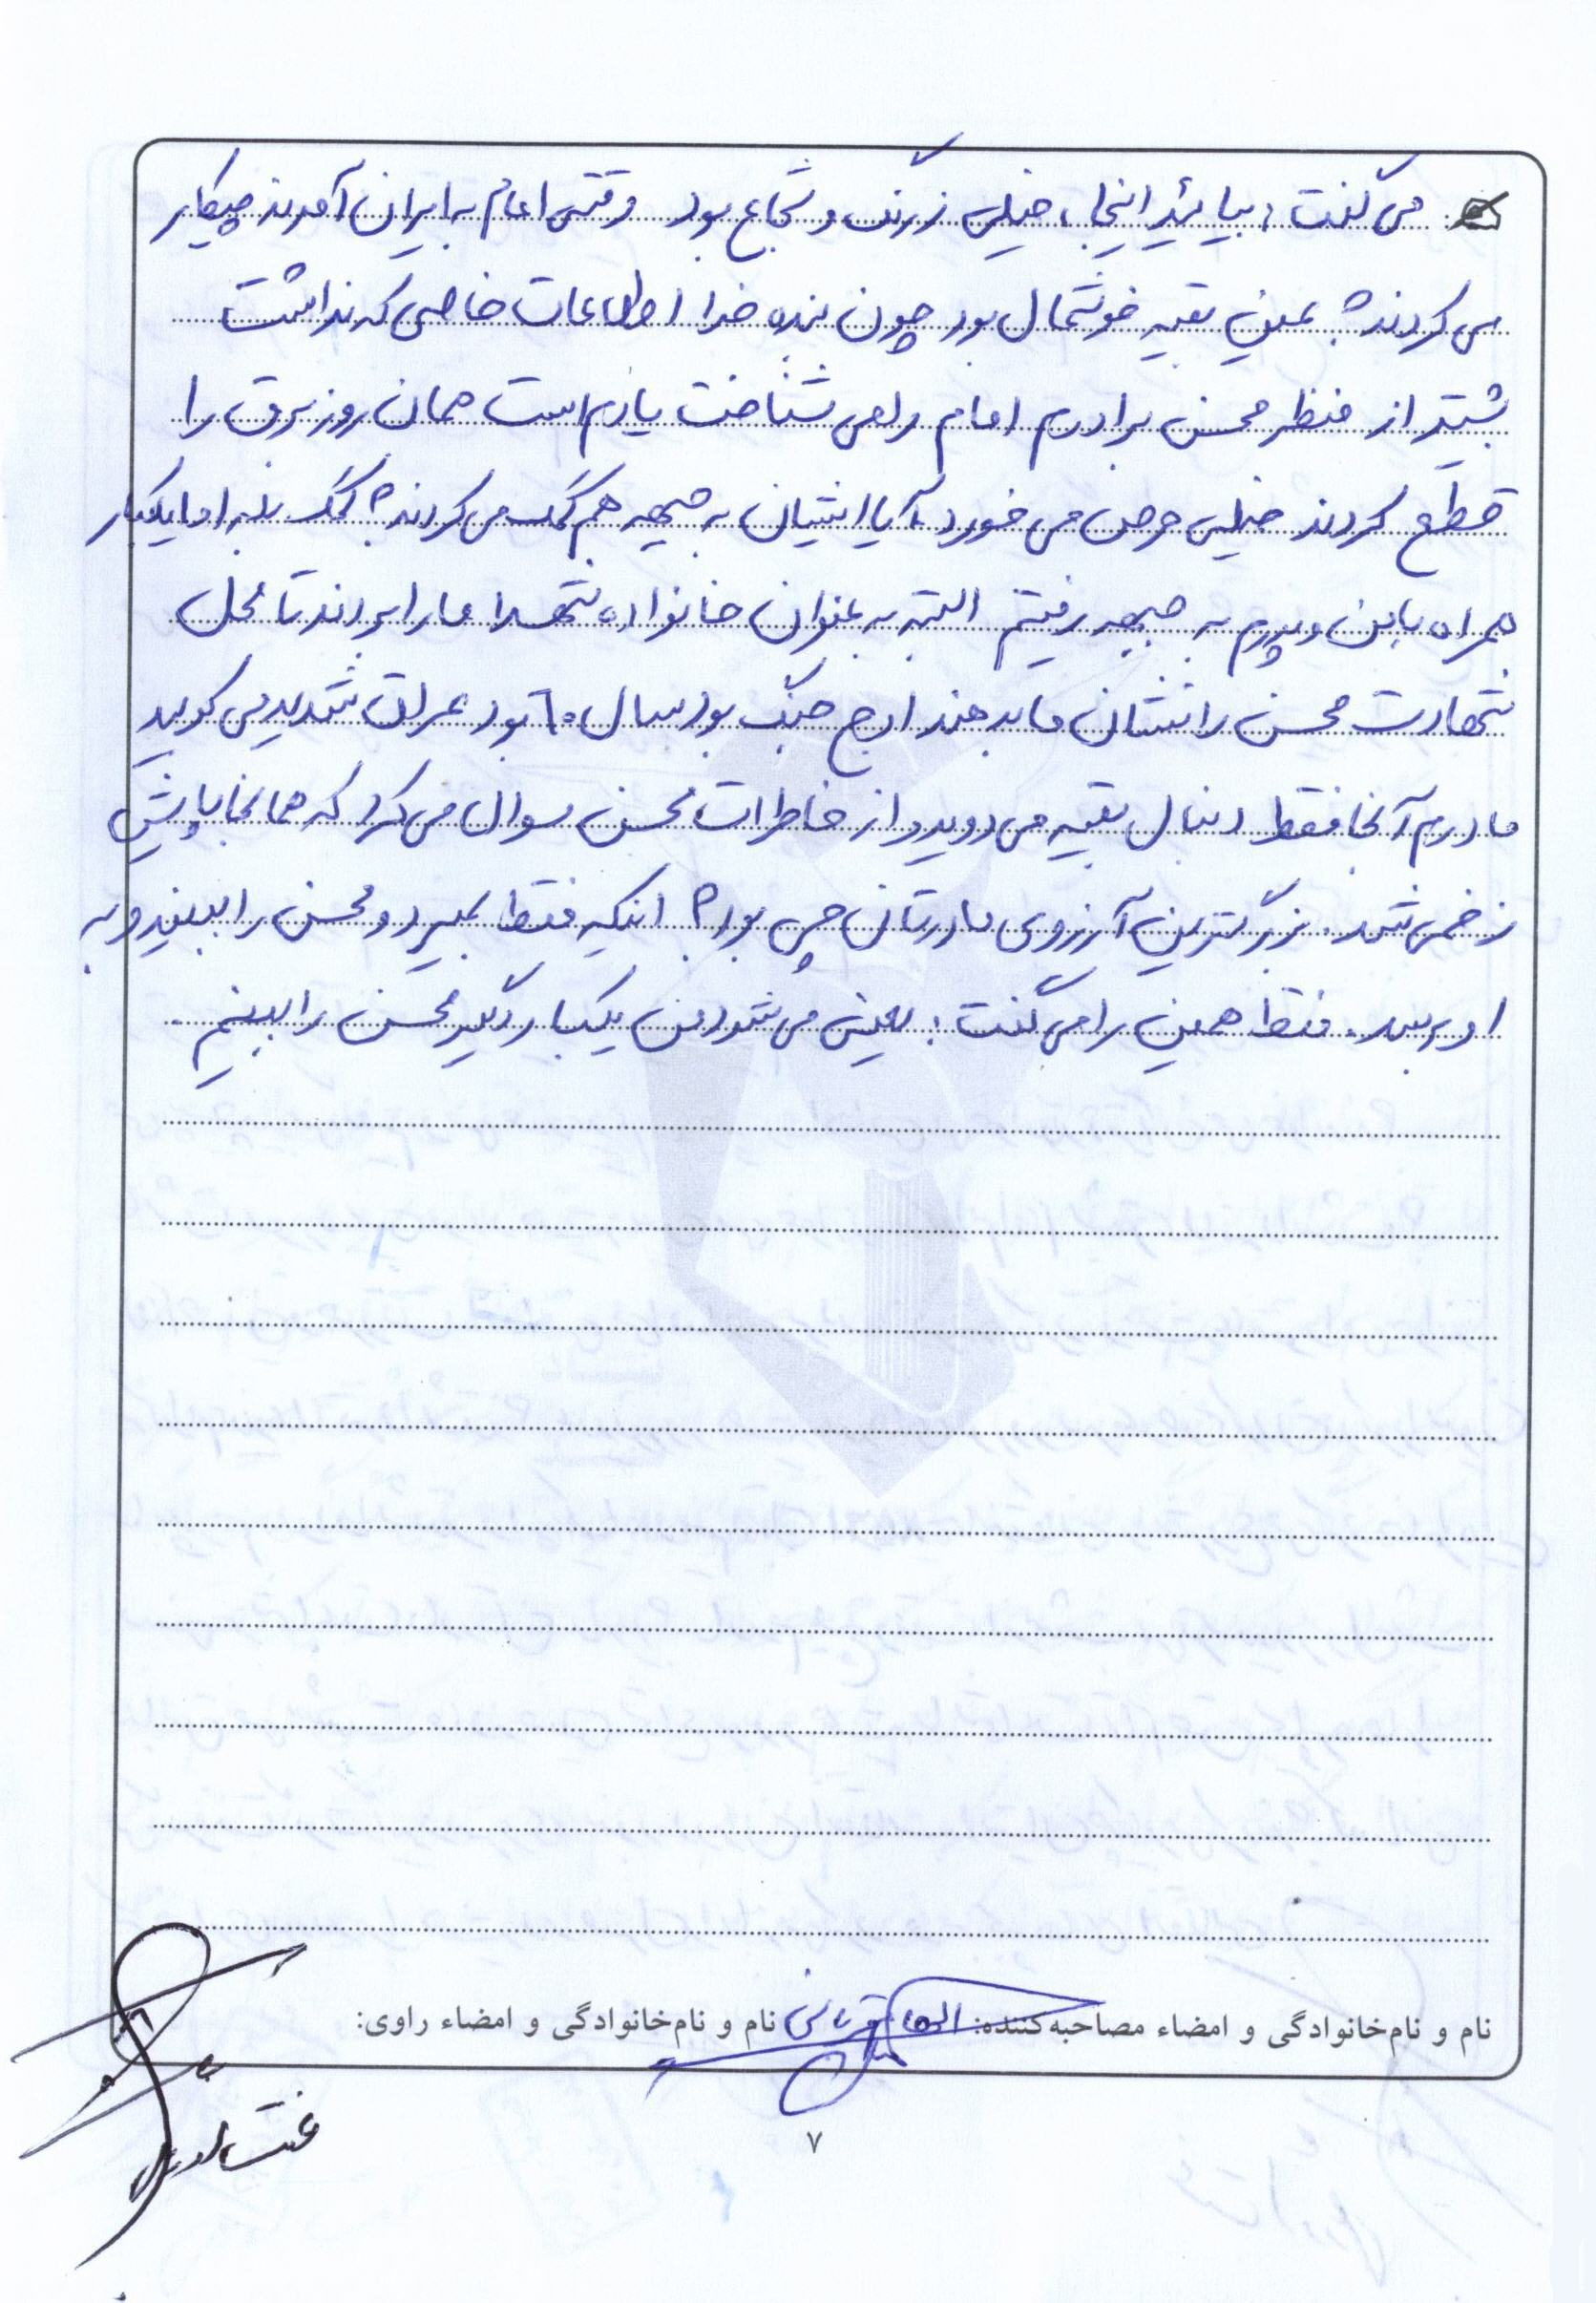 می گفت: بیائید اینجا، خیلی زرنگ و شجاع بود وقتی امام به ایران آمدند چیکار
می کردند؟ عین بقیه خوشحال بود چون بنده خدا اطلاعات خاصی که نداشت
بیشتر از منظر محسن برادرم امام را می شناخت یادم است همان روز برق را
قطع کردند خیلی حرص می خورد، آیا ایشان به جبهه هم کمک می کردند؟ کمک نه اما یکبار
همراه با من و پدرم به جبهه رفتیم البته به عنوان خانواده شهدا ما را بردند تا محل
شهادت محسن را نشان ما بدهند اوج جنگ بود سال ٦٠ بود عراق شدید می کوبید
مادرم آنجا فقط دنبال بقیه می دوید و از خاطرات محسن سوال می کرد که همانجا پایش
زخمی شد. بزرگترین آرزوی مادرتان چی بود؟ اینکه فقط بمیرد و محسن را ببیند و به
او برسد. فقط همین را می گفت: یعنی می شود من یکبار دیگر محسن را ببینم
نام و نام‌خانوادگی و امضاء مصاحبه‌کننده: الهام نام و نام‌خانوادگی و امضاء راوی:
۷